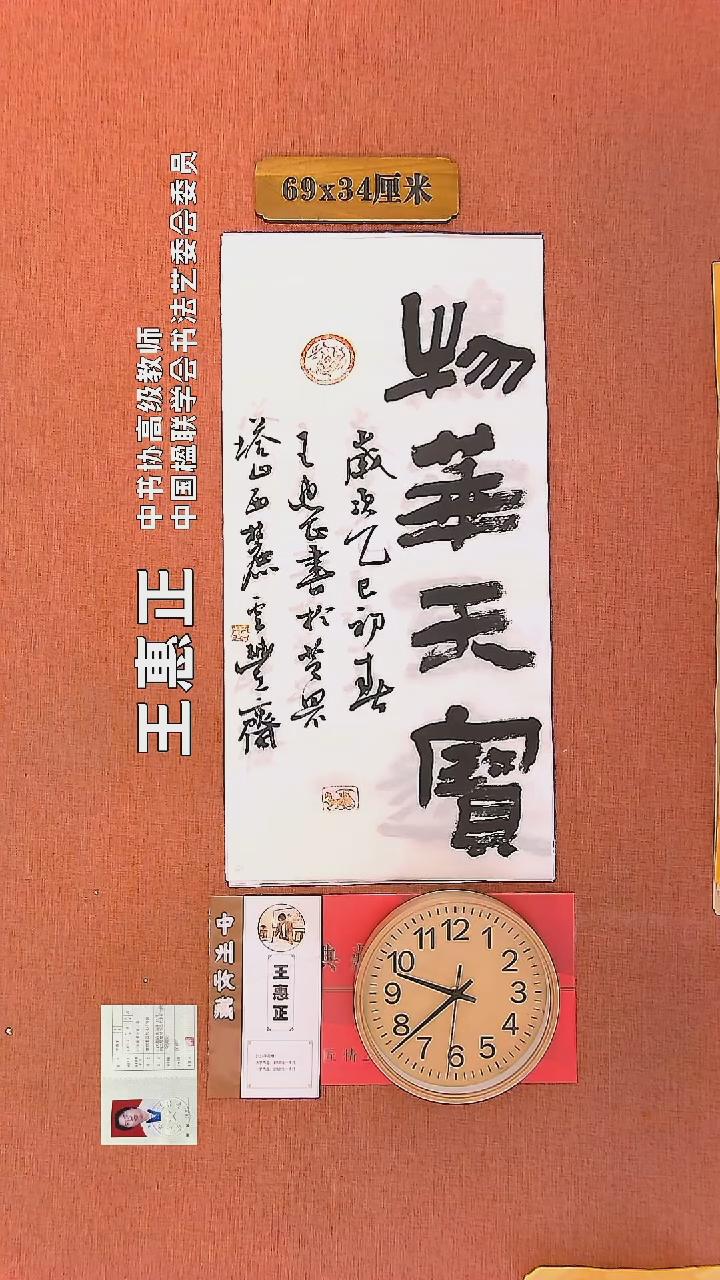 69x34厘米
物華天寶
歲次乙巳初春
王惠正書於芝罘
塔山西麓雲豐齋
中书协高级教师
中国楹联学会书法艺委会委员
王惠正
王惠正
12
1
2
3
4
5
6
7
8
9
10
11